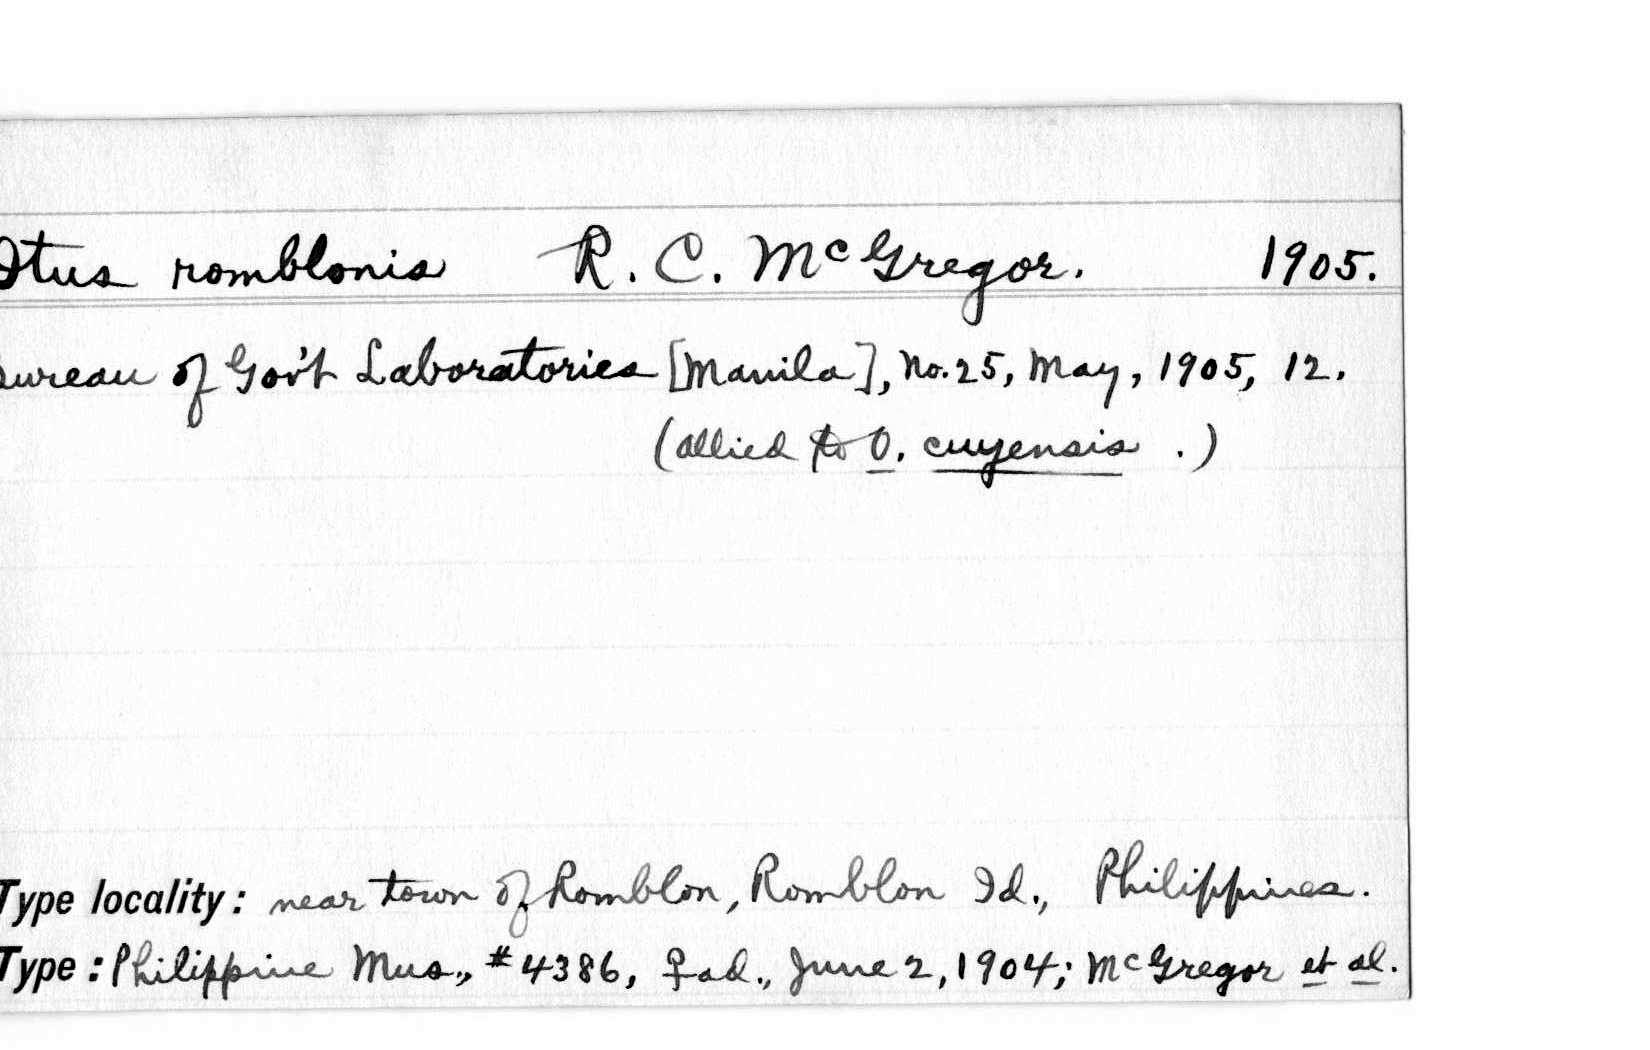 Otus romblonis R. C. McGregor. 1905.
Bureau of Gov't Laboratories [Manila], No. 25, May, 1905, 12.
(allied to O. cuyensis .)
Type locality: near town of Romblon, Romblon Id., Philippines.
Type: Philippine Mus., #4386, ♀ ad., June 2, 1904; McGregor et al.